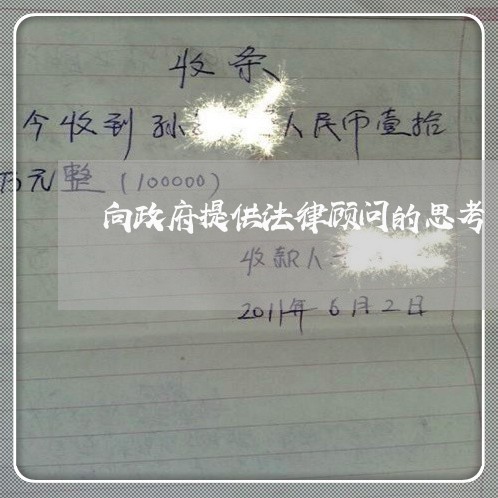 收条
今收到孙 人民币壹拾
万元整（100000）
向政府提供法律顾问的思考
收款人
2011年6月2日